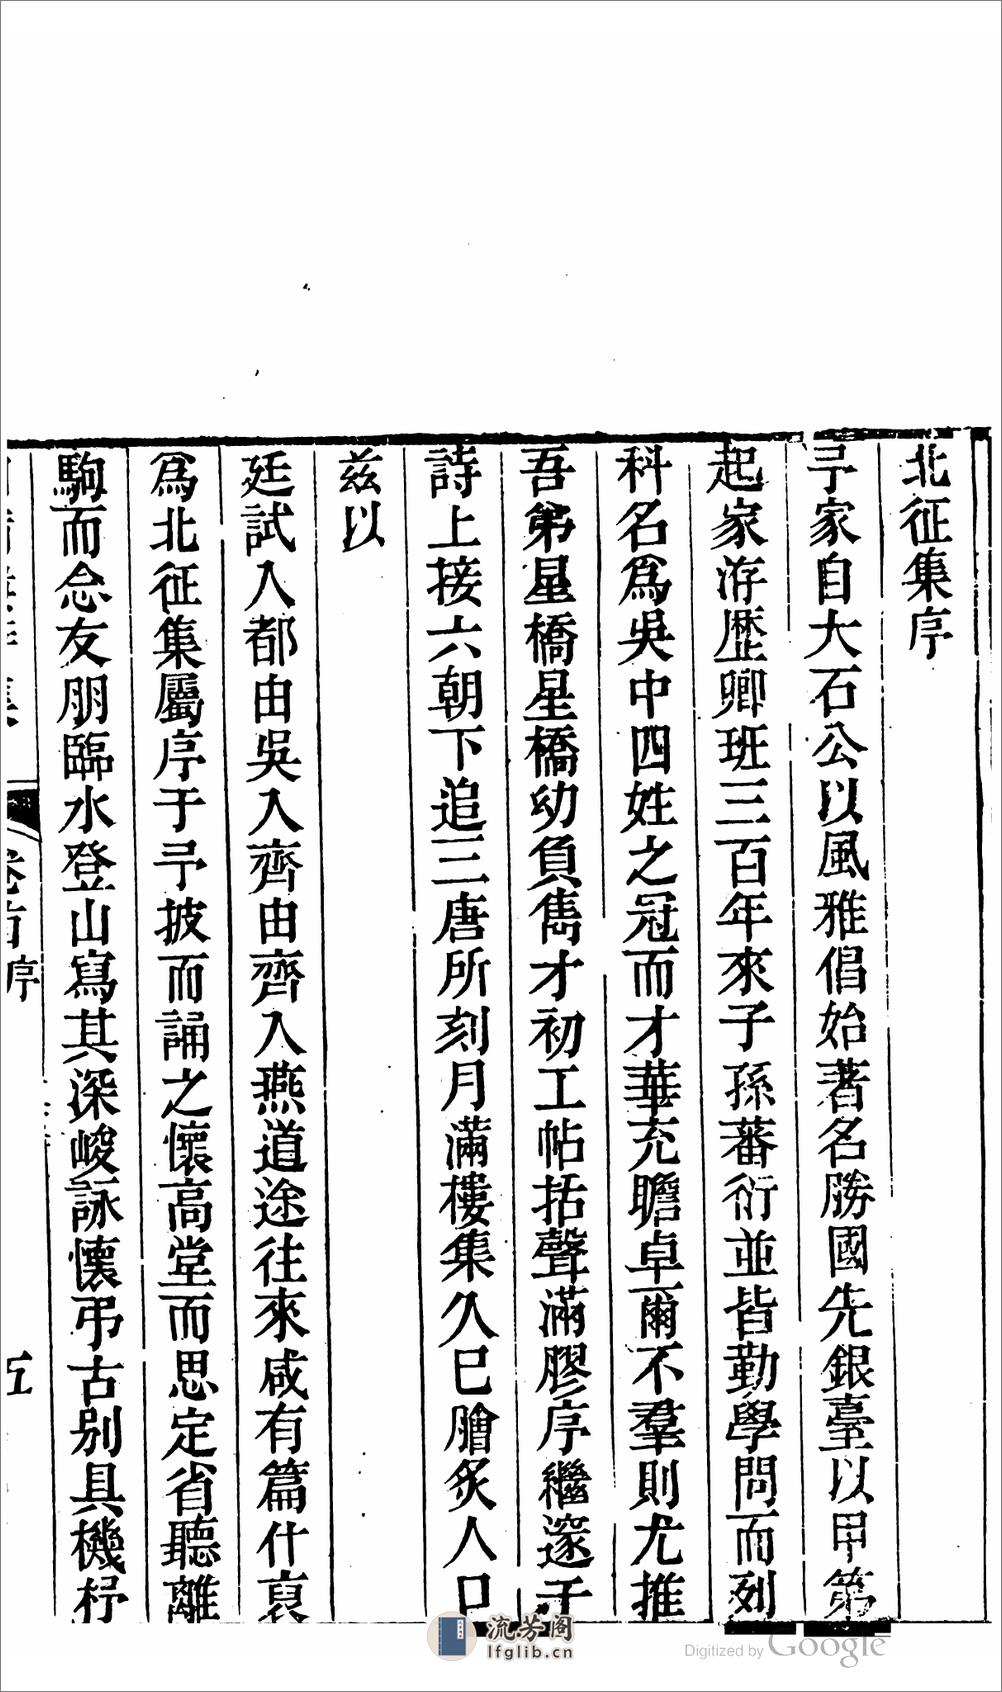 北征集序
予家自大石公以風雅倡始著名勝國先銀臺以甲第
起家洊歷卿班三百年來子孫蕃衍並皆勤學問而列
科名爲吳中四姓之冠而才華充贍卓爾不羣則尤推
吾弟星橋星橋幼負雋才初工帖括聲滿膠序繼邃于
詩上接六朝下追三唐所刻月滿樓集久已膾炙人口
茲以
廷試入都由吳入齊由齊入燕道途往來咸有篇什裒
爲北征集屬序于予披而誦之懷高堂而思定省聽離
駒而念友朋臨水登山寫其深峻詠懷弔古別具機杼
卷首序
五
流芳阁
lfglib.cn
Digitized by Google